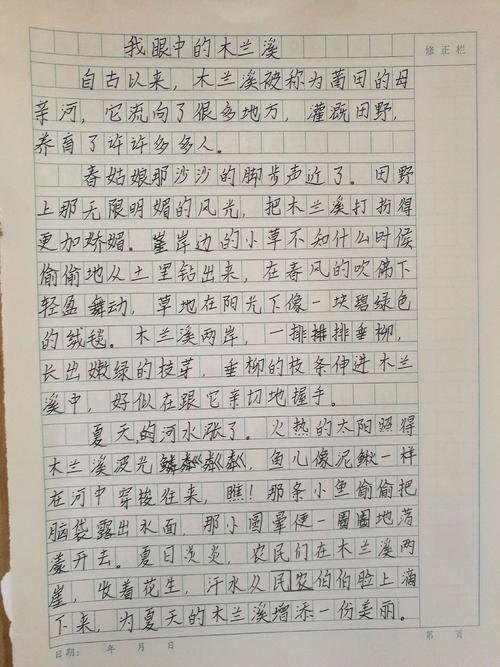 我眼中的木兰溪
修正栏
自古以来，木兰溪被称为莆田的母
亲河，它流向了很多地方，灌溉田野，
养育了许许多多人。
春姑娘那沙沙的脚步声近了。田野
上那无限明媚的风光，把木兰溪打扮得
更加娇媚。崖岸边的小草不知什么时候
偷偷地从土里钻出来，在春风的吹佛下
轻盈舞动，草地在阳光下像一块碧绿色
的绒毯。木兰溪两岸，一排排排垂柳，
长出嫩绿的枝芽，垂柳的枝条伸进木兰
溪中，好似在跟它亲切地握手。
夏天的河水涨了。火热的太阳照得
木兰溪波光粼粼，鱼儿像泥鳅一样
在河中穿梭往来，瞧！那条小鱼偷偷把
脑袋露出水面，那小圆晕便一圈圈地荡
漾开去。夏日炎炎，农民们在木兰溪两
崖，收着花生，汗水从民农伯伯脸上滴
下来，为夏天的木兰溪增添一份美丽。
日期： 年 月 日
第 页